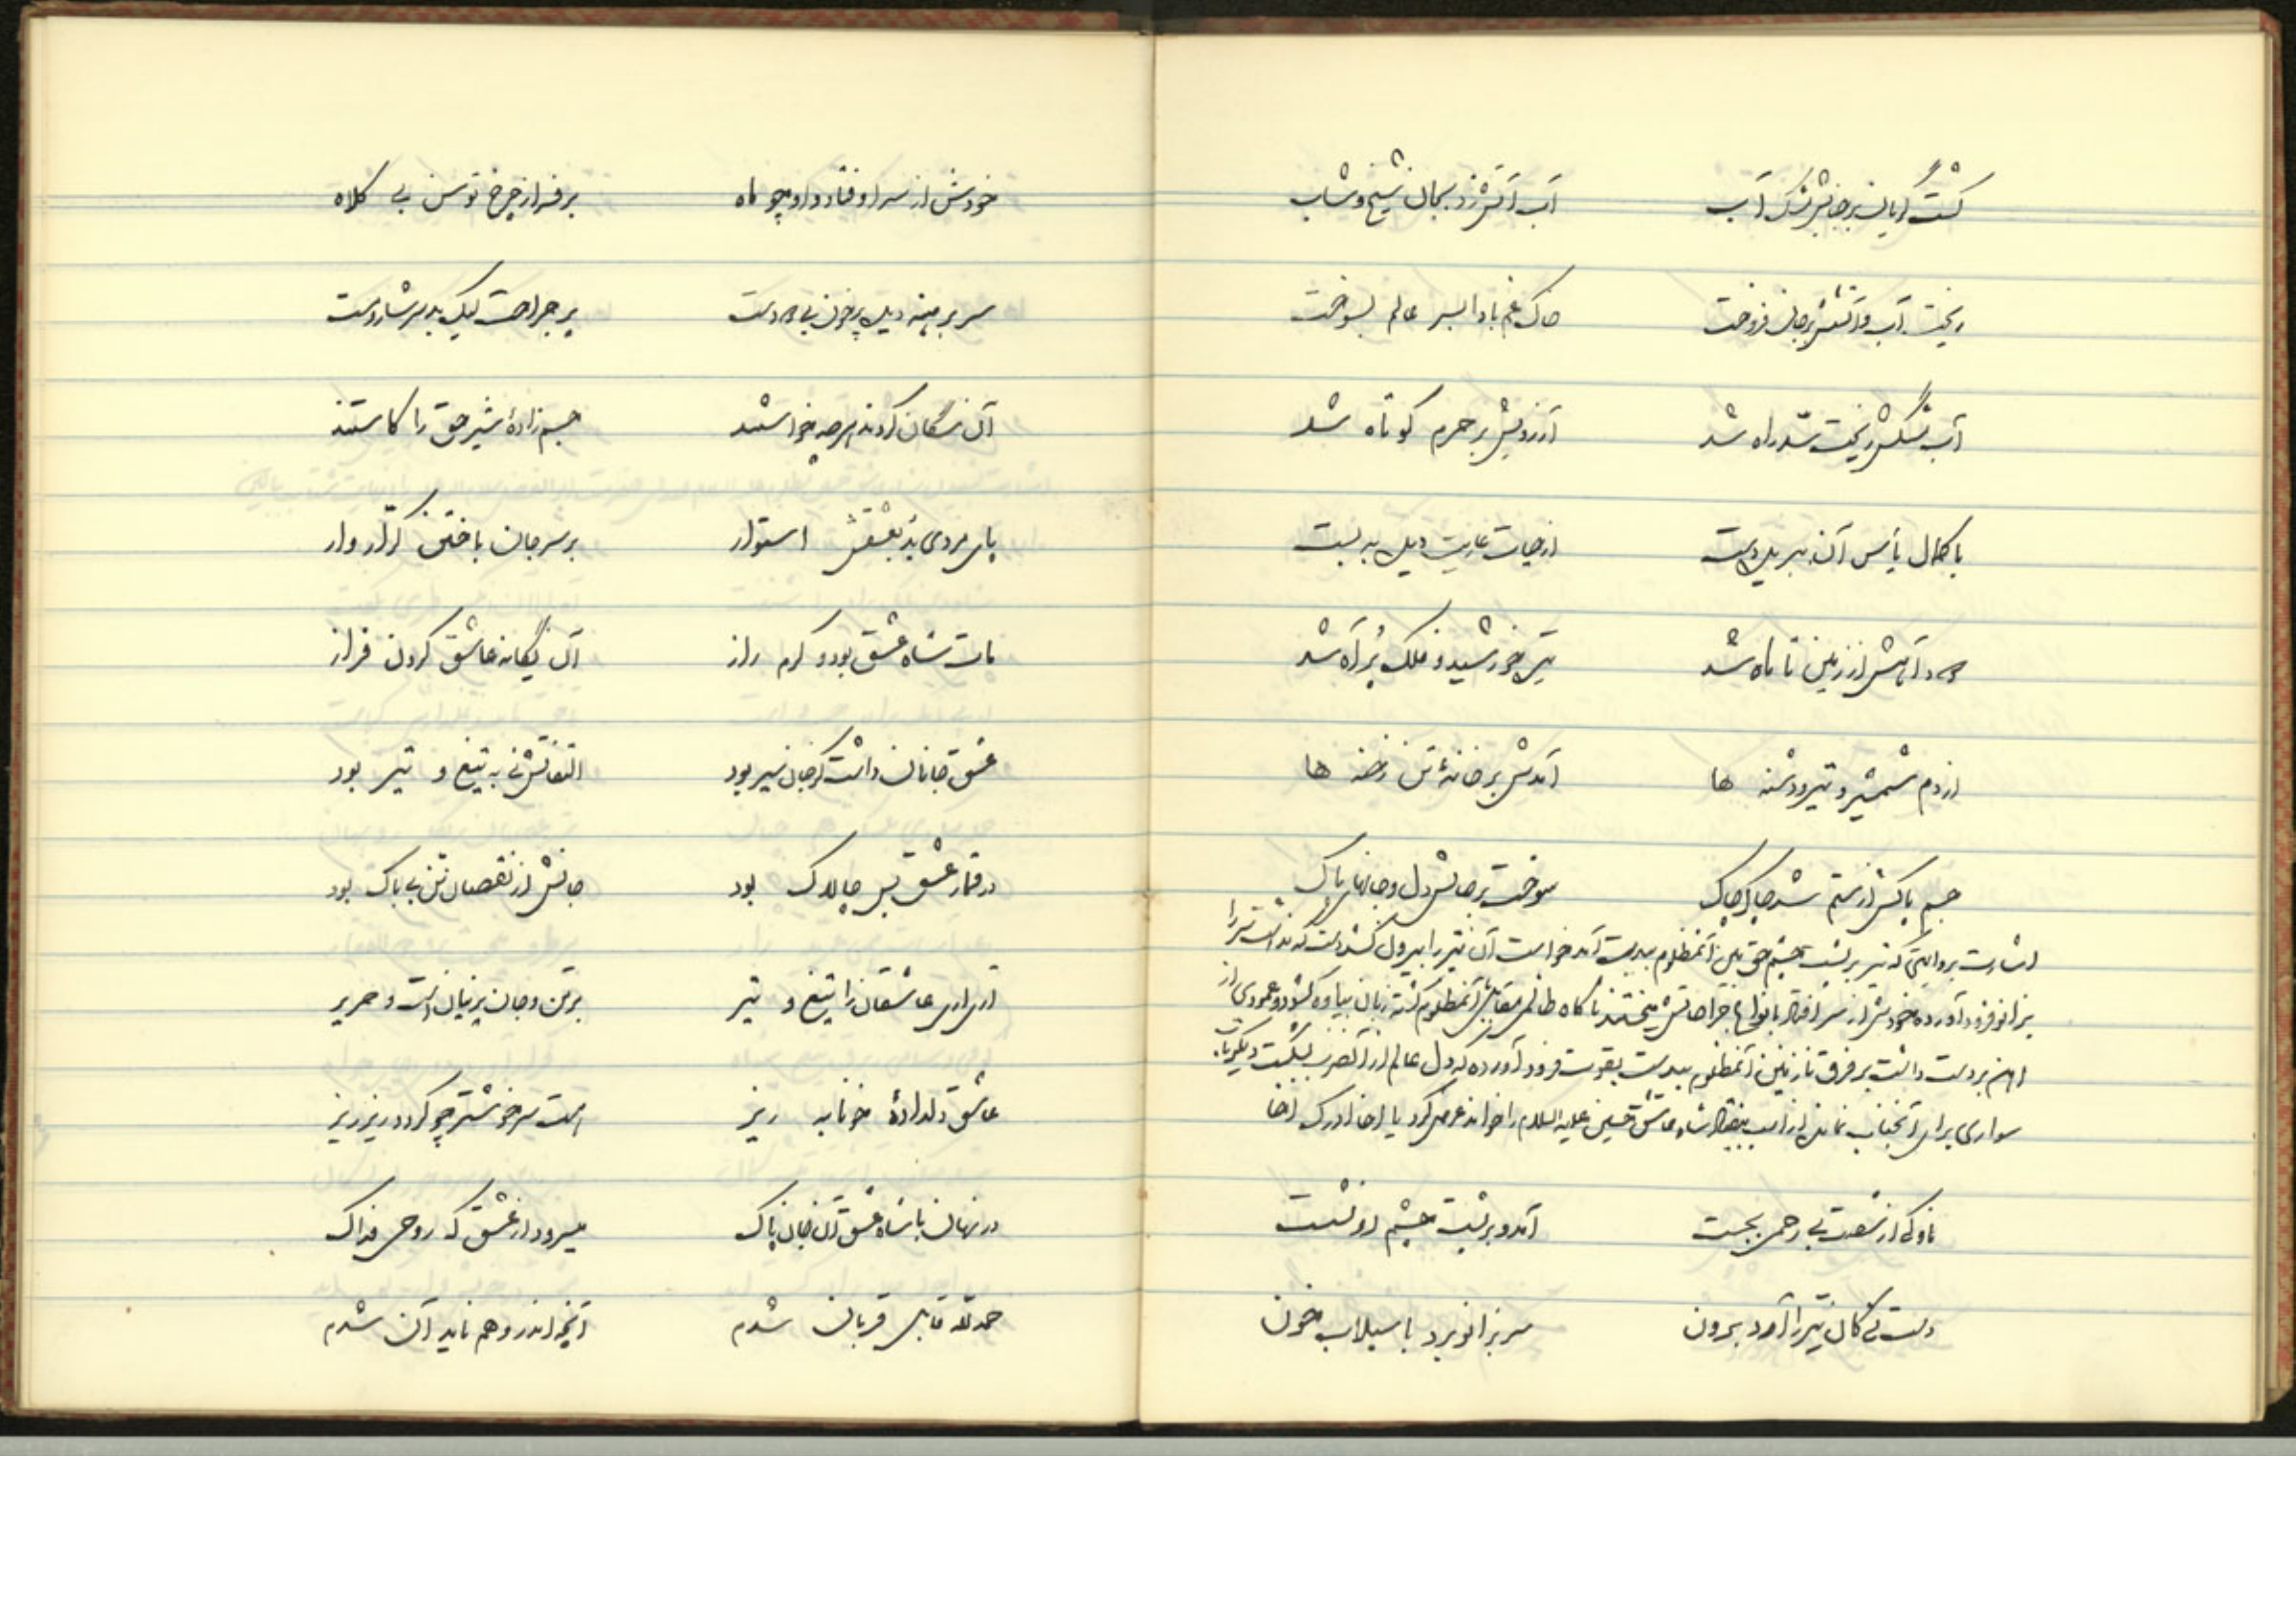 گشت گریان بر جانش مشک آب آب آتش زد بجان شیخ و شاب
ریخت آب و آتشش بر جان فروخت خاک غم بادا بسر عالم بسوخت
آب مشکش ریخت سدّ راه شد آرزویش بر حرم کوتاه شد
با کمال یأس آن ببریده دست از حیات عاریت دل به بست
دود آهش از زمین تا ماه شد تیره خورشید و فلک پُر آه شد
از دم شمشیر و تیر و دشنه ها آمدش بر خانهٔ تن رخنه ها
جسم پاکش از ستم شد چاک چاک سوخت بر جانش دل و جانهای پاک
اشارت بروایتی که تیر بر پشت چشم حق بین آنمظلوم بیدست آمد خواست آن تیر را بیرون کشد دست که نداشت سر را
بزانو فرود آورده خودش از سر افتاد با انواع جراحاتش ناگاه ظالمی مقابل آنمظلوم گشته زبان بیاوه گشود و عمودی از
آهن بر دست داشت بر فرق نازنین آنمظلوم بیدست بقوت فرود آورده که دل عالم از آنضرب بشکست دیگر تاب
سواری برای آنجناب نمانده از اسب بیفتاد شاه عاشق حسین علیه السلام را خواند عرض کرد یا اخا ادرک اخا
ناوکی از شصت بی رحمی بجست آمد و بر پشت چشم او نشست
دست نی کان تیر را آرد برون سر بزانو برد با سیلاب خون
خودش از سر اوفتاد و او چو ماه بر فراز چرخ توسن بی کلاه
سر برهنه دیده پر خون بی دو دست پر جراحت لیک بد سرشار و مست
آن سگان کردند هر چه خواستند جسم زادهٔ شیر حق را کاستند
پای مردی بُد بعشقش استوار بر سر جان باختن کرّار وار
مات شاه عشق بود و گرم راز آن یگانه عاشق گردن فراز
عشق جانان داشت کز جان سیر بود التفاتش نی به تیغ و تیر بود
در قمار عشق بس چالاک بود جانش از نقصان تن بی باک بود
آری آری عاشقان را تیغ و تیر بر تن و جان پرنیان است و حریر
عاشق دلدادهٔ خونابه ریز هست سرخوشتر چو گردد ریز ریز
در نهان با شاه عشق آن جان پاک میسرود از عشق که روحی فداک
حمد للّه قابل قربان شدم آنچه اندر وهم ناید آن شدم